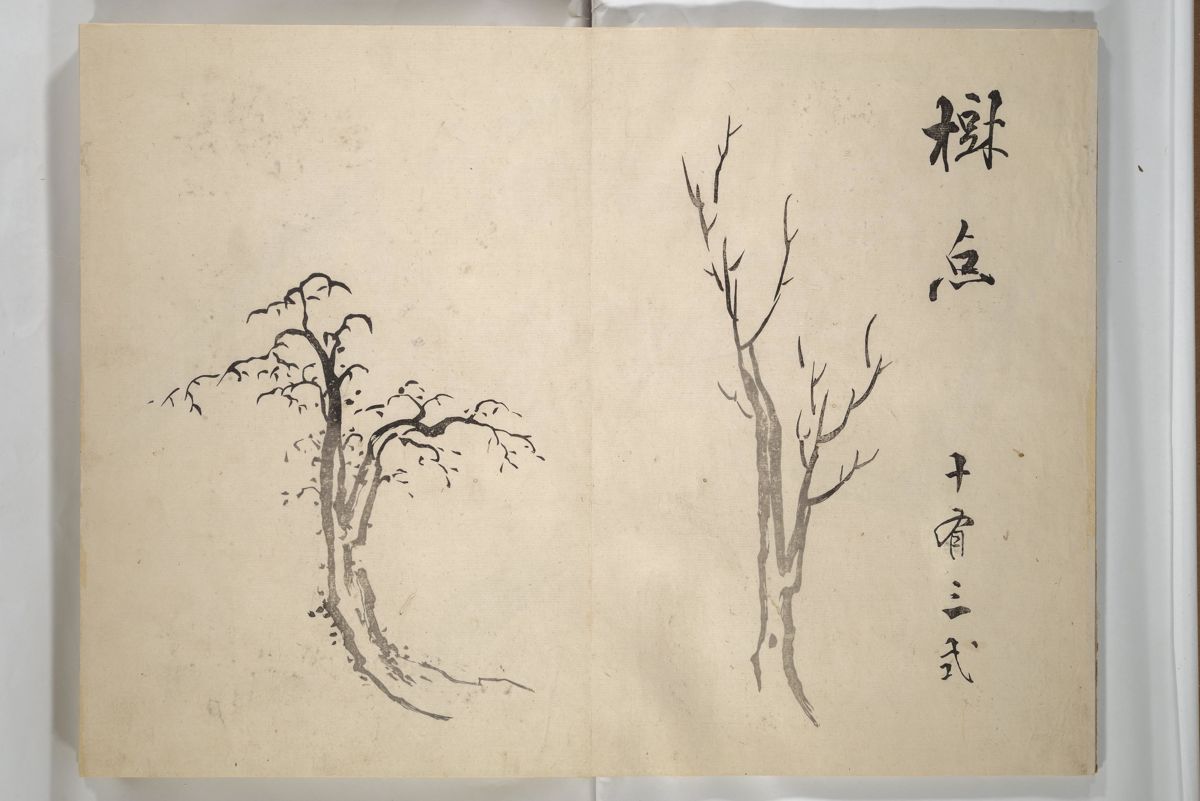 樹点 十有三式